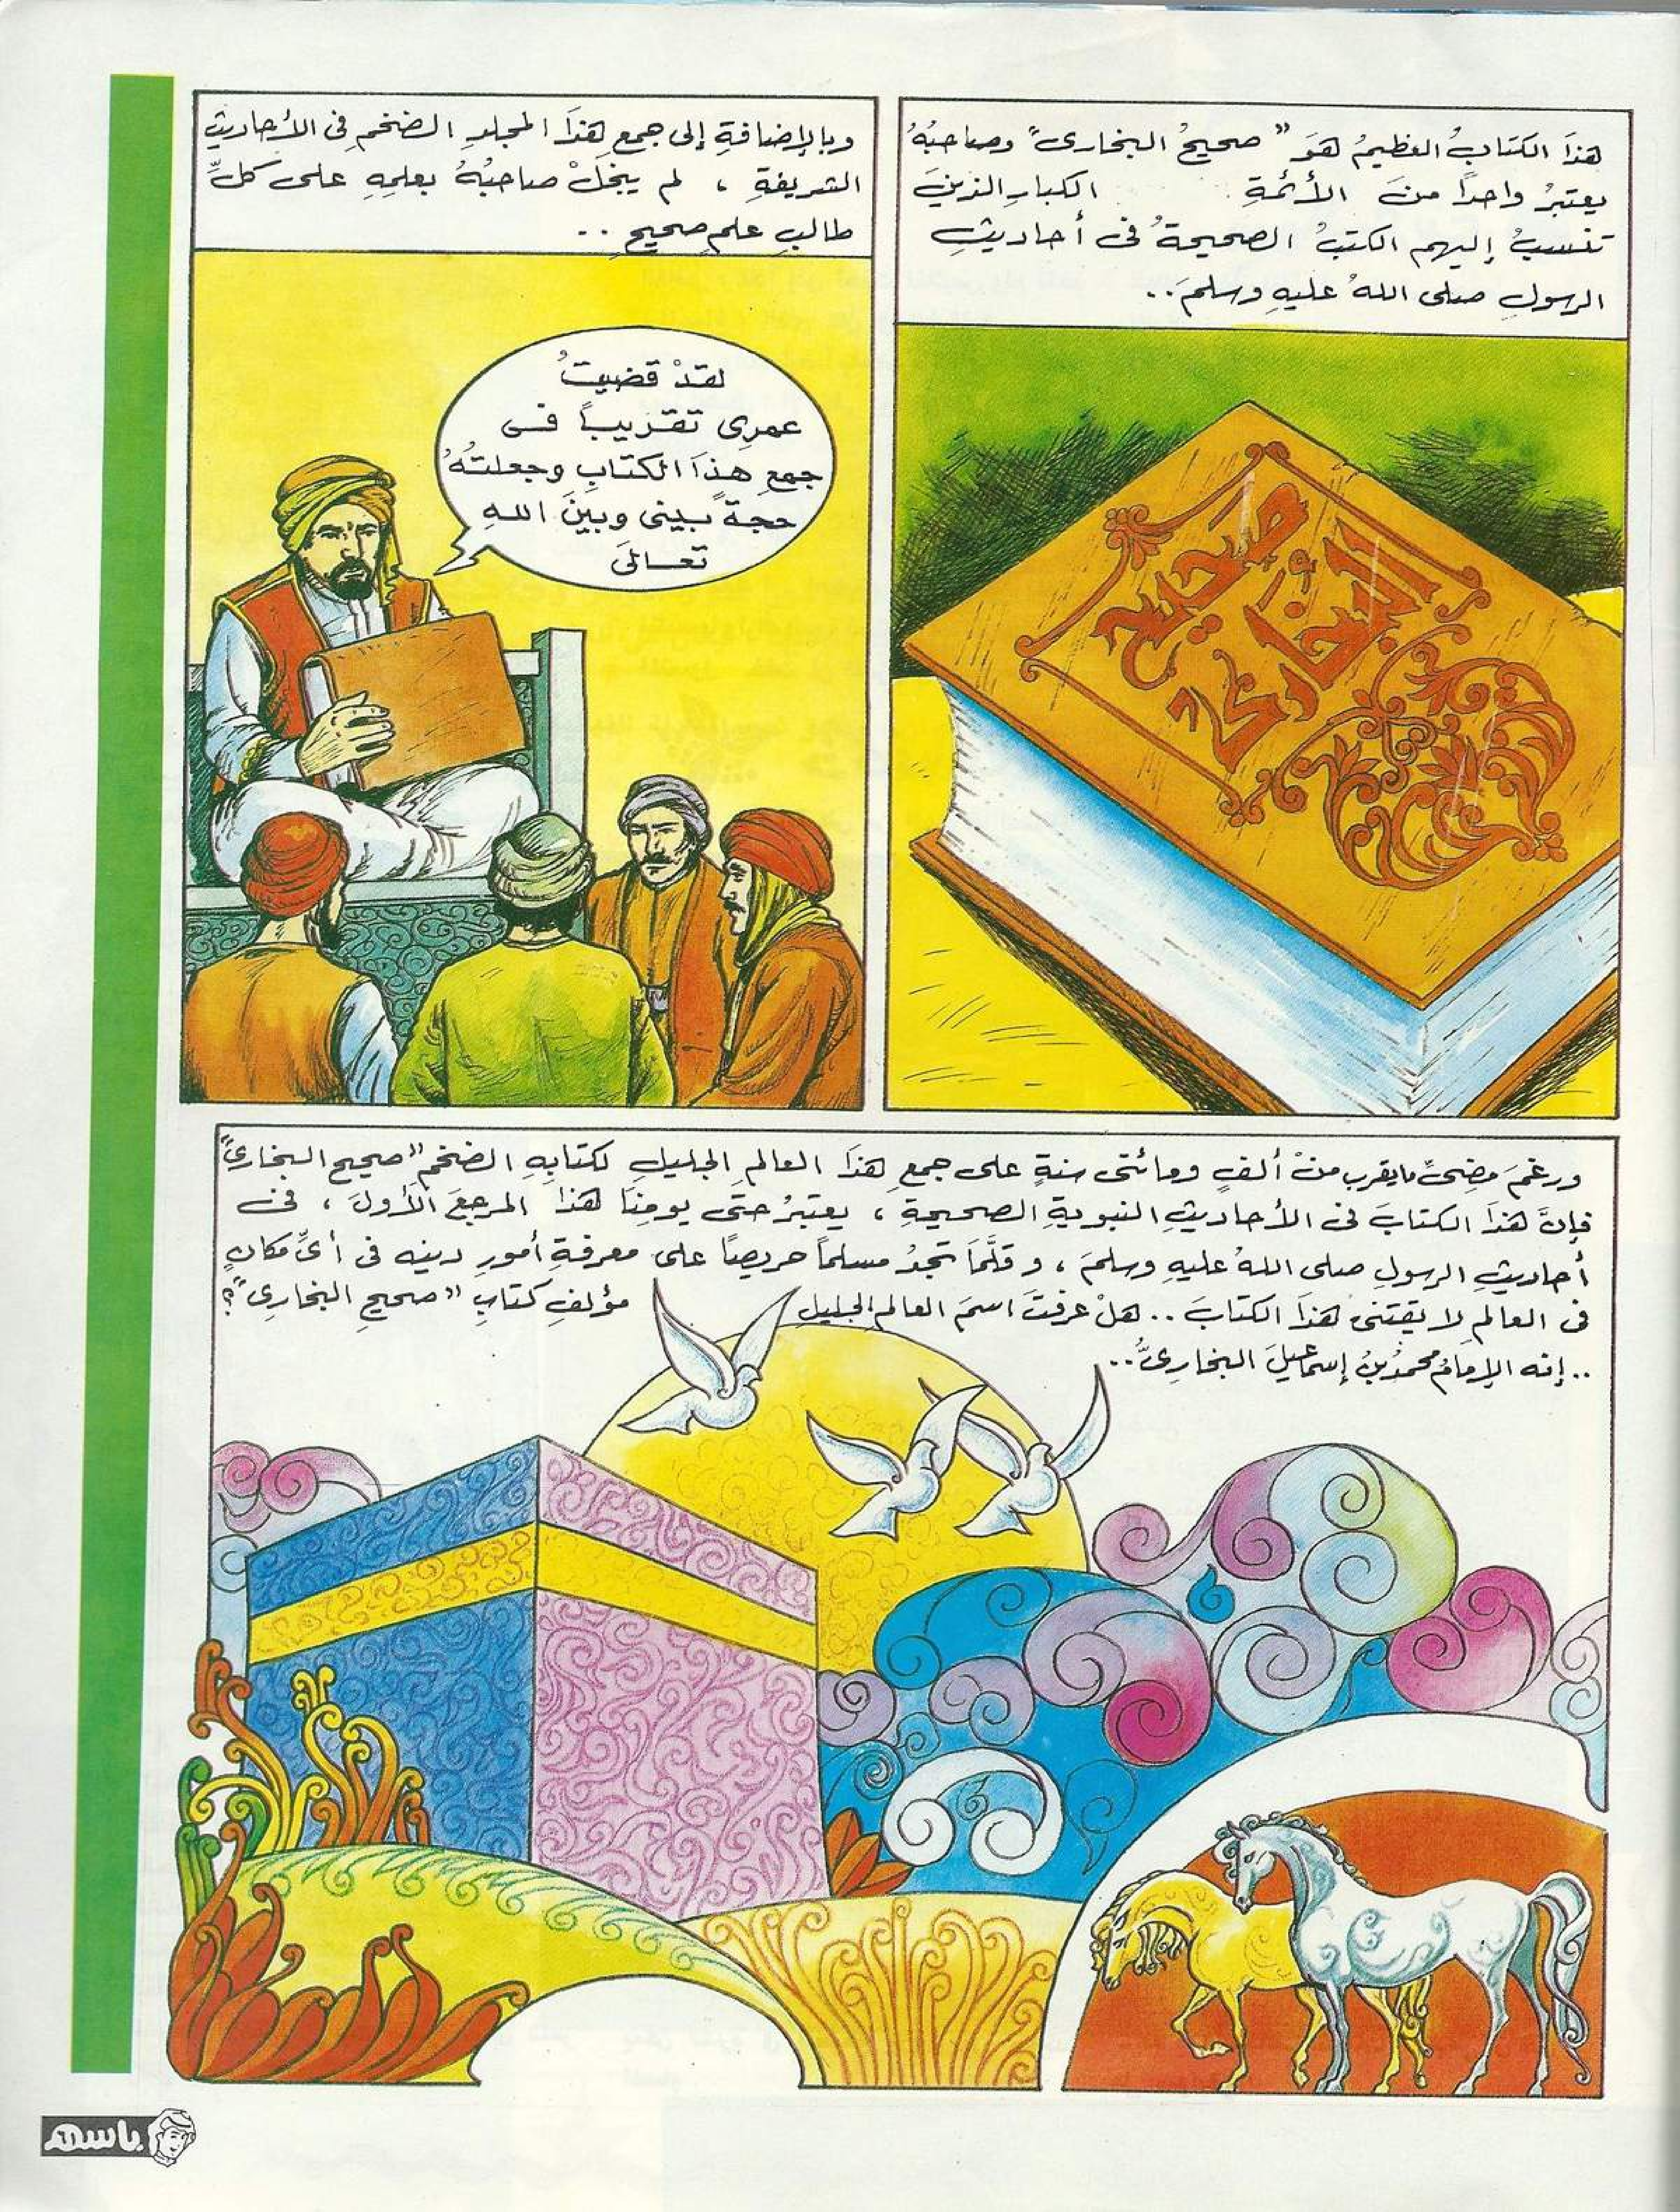 هذَا الكتابُ العظيمُ هوَ "صحيحُ البخارى" وصاحبُهُ
يعتبرُ واحداً منَ الأئمةِ الكبارِ الذينَ
تنسبُ إليهم الكتبُ الصحيحةُ فى أحاديثِ
الرسولِ صلى اللهُ عليهِ وسلمَ..
صحيح
البخارى
وبالإضافةِ إلى جمعِ هذَا المجلدِ الضخمِ فى الأحاديثِ
الشريفةِ ، لم يبخلْ صاحبُهُ بعلمِهِ على كلِّ
طالبِ علمٍ صحيحٍ ..
لقدْ قضيتُ
عمرِى تقريباً فى
جمعِ هذَا الكتابِ وجعلتُهُ
حجةً بينى وبينَ اللهِ
تعالىَ
ورغمَ مضىِّ مايقرب منْ ألفٍ ومائتى سنةٍ على جمعِ هذَا العالمِ الجليلِ لكتابِهِ الضخمِ "صحيح البخارىِّ"
فإنَّ هذَا الكتابَ فى الأحاديثِ النبويةِ الصحيحةِ ، يعتبرُ حتَّى يومِنَا هذَا المرجعَ الأولَ ، فى
أحاديثِ الرسولِ صلى اللهُ عليهِ وسلمَ ، و قلَّمَا تجدُ مسلماً حريصاً على معرفةِ أمورِ دينِه فى أىِّ مكانٍ
فى العالمِ لا يقتنى هذَا الكتابَ .. هلْ عرفتَ اسمَ العالمِ الجليلِ مؤلفِ كتابِ "صحيحِ البخارِىِّ"؟
.. إنه الإمامُ محمدُ بنُ إسماعيلَ البخارِىُّ..
باسم